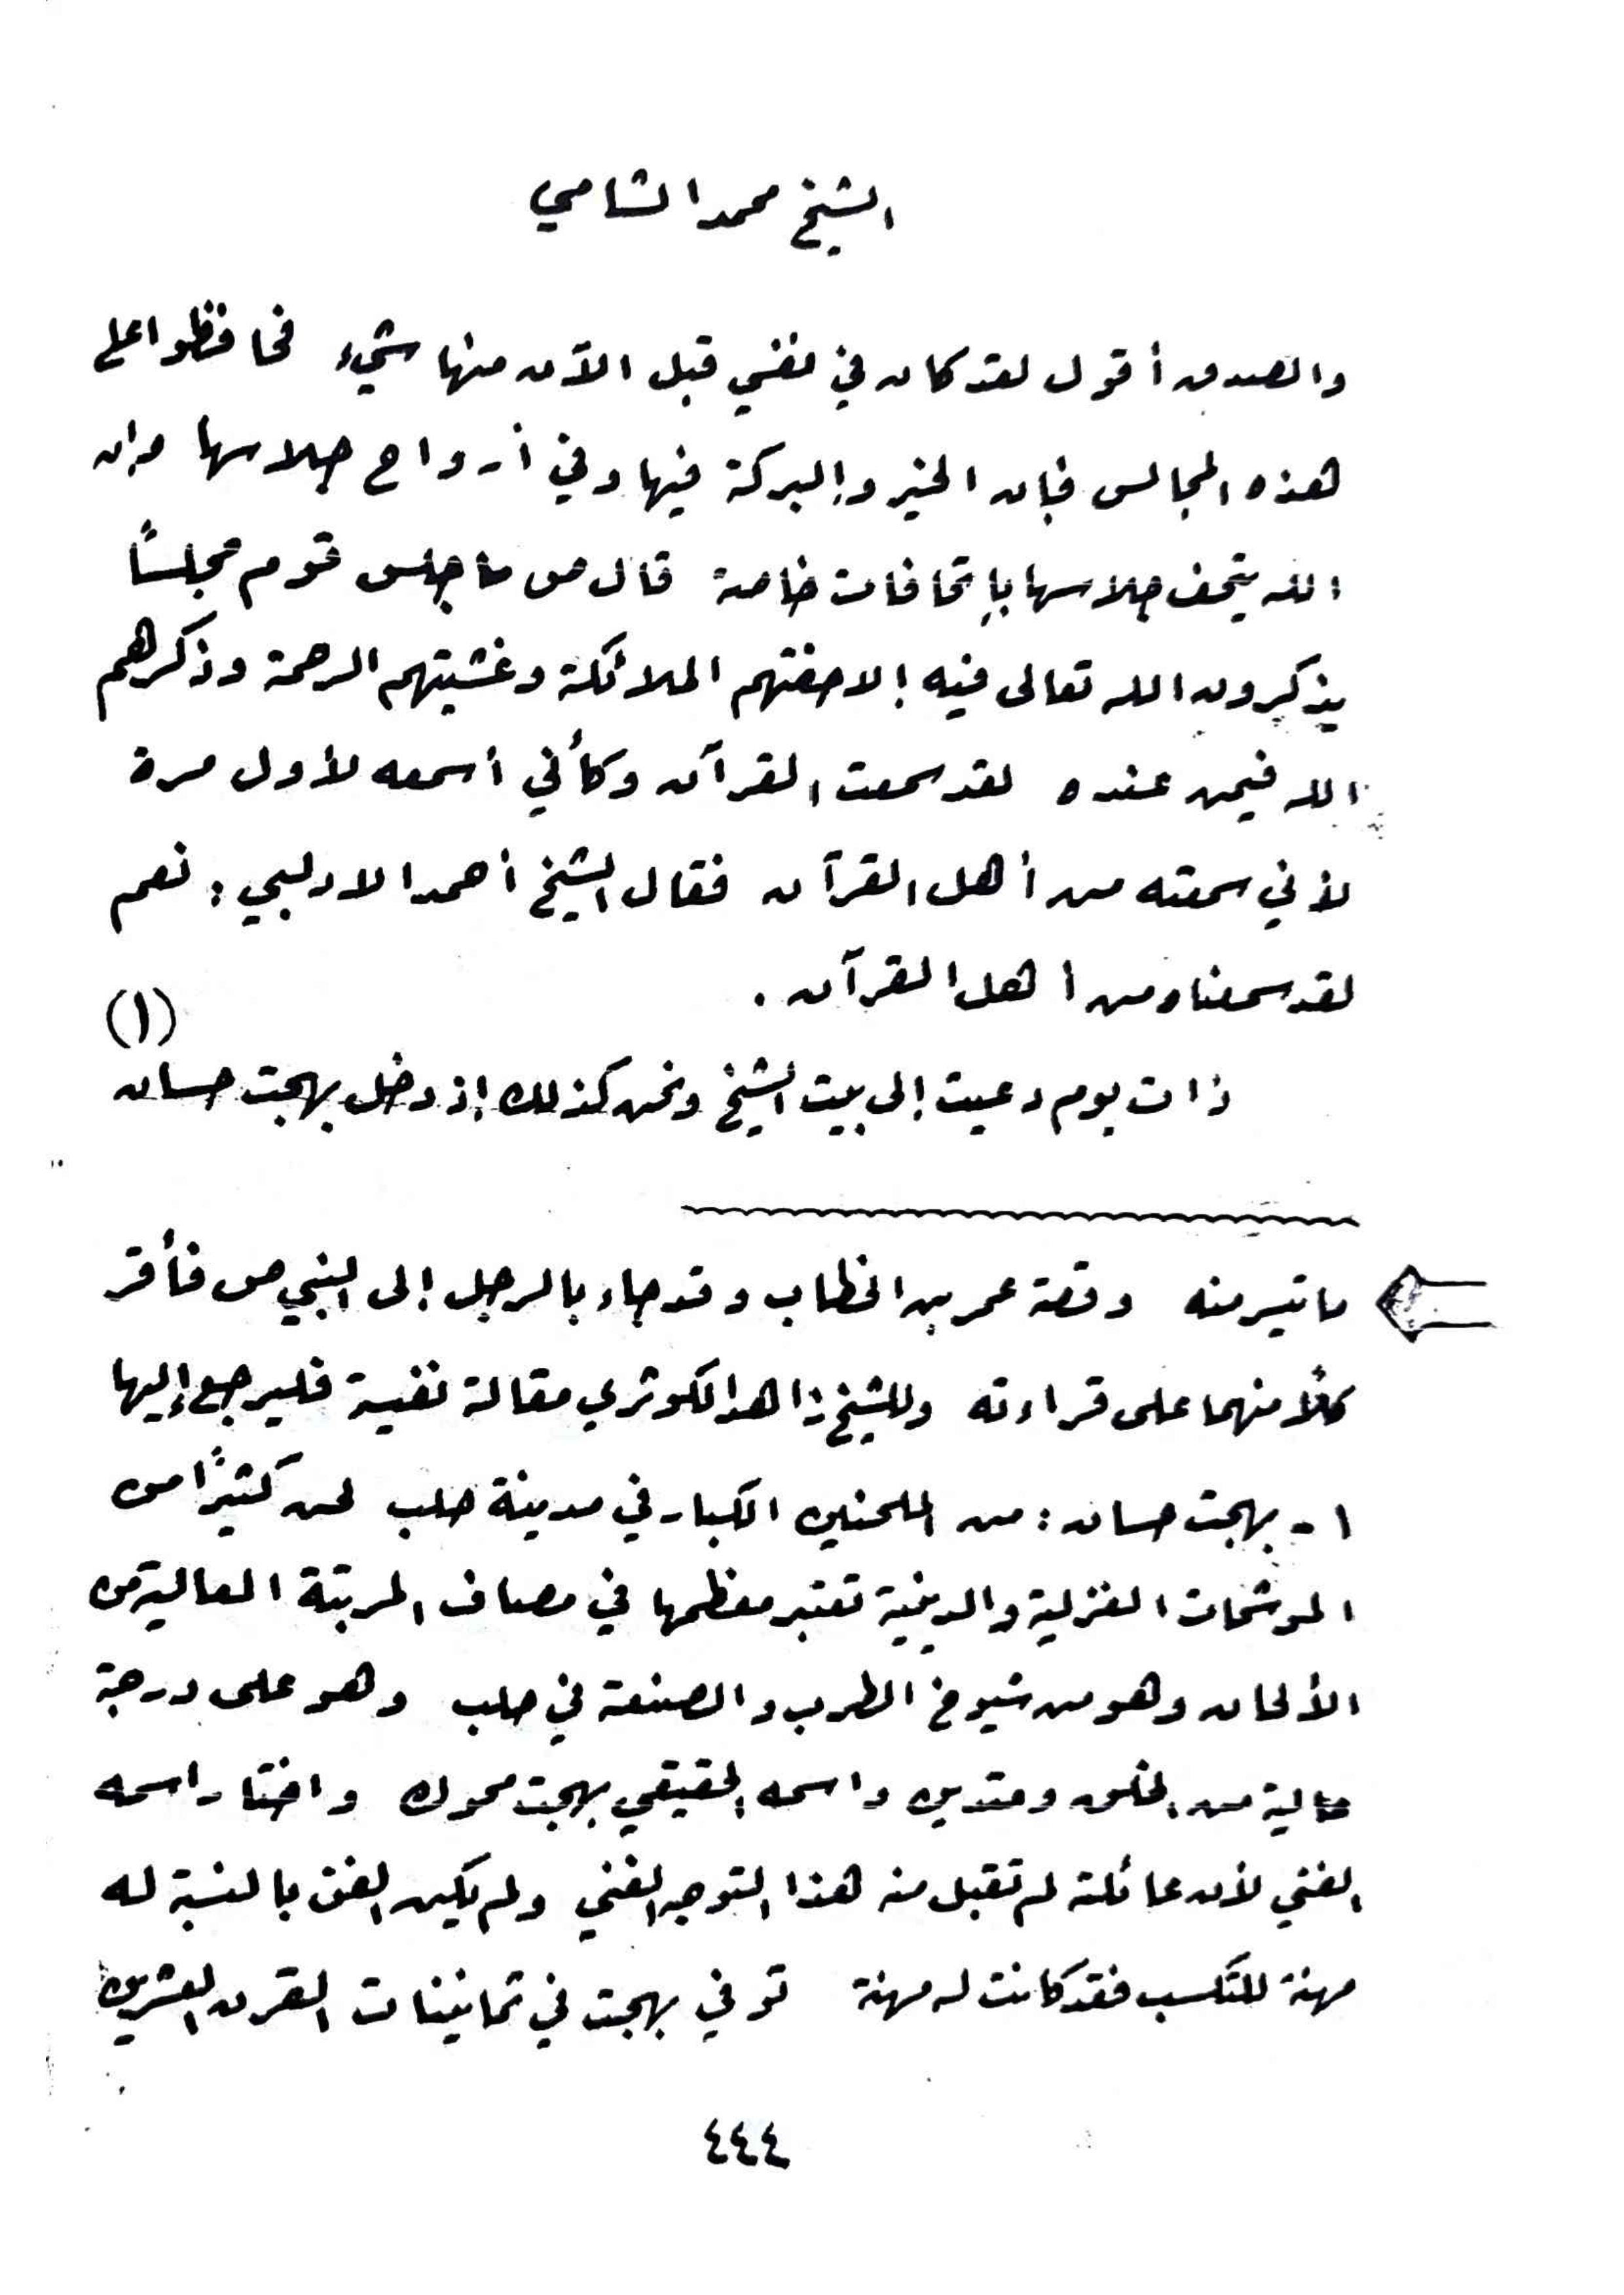 الشيخ محمد الشامي
والصدق أقول لقد كان في نفسي قبل الآن منها شيء فحافظوا على
هذه المجالس فإن الخير والبركة فيها وفي أرواح جلاسها وإن
الله يتحف جلاسها بإتحافات خاصة قال ص ما جلس قوم مجلسًا
يذكرون الله تعالى فيه إلا حفتهم الملائكة وغشيتهم الرحمة وذكرهم
الله فيمن عنده لقد سمعت القرآن وكأني أسمعه لأول مرة
لأني سمعته من أهل القرآن فقال الشيخ أحمد الادلبي : نعم
لقد سمعناه من أهل القرآن .
ذات يوم دعيت إلى بيت الشيخ ونحن كذلك إذ دخل بهجت حسان (١)
ما تيسر منه وقصة عمر بن الخطاب وقد جاء بالرجل إلى النبي ص فأقر
كلاً منهما على قراءته وللشيخ زاهد الكوثري مقالة نفيسة فليرجع إليها
١ - بهجت حسان : من الملحنين الكبار في مدينة حلب لحن كثيرًا من
الموشحات الغزلية والدينية تعتبر معظمها في مصاف المرتبة العالية من
الألحان وهو من شيوخ الطرب والصنعة في حلب وهو على درجة
عالية من الخلق ومتدين واسمه الحقيقي بهجت محوك واختار اسمه
الفني لأن عائلته لم تقبل منه هذا التوجه الفني ولم يكن الفن بالنسبة له
مهنة للتكسب فقد كانت له مهنة توفي بهجت في ثمانينات القرن العشرين
٤٤٤